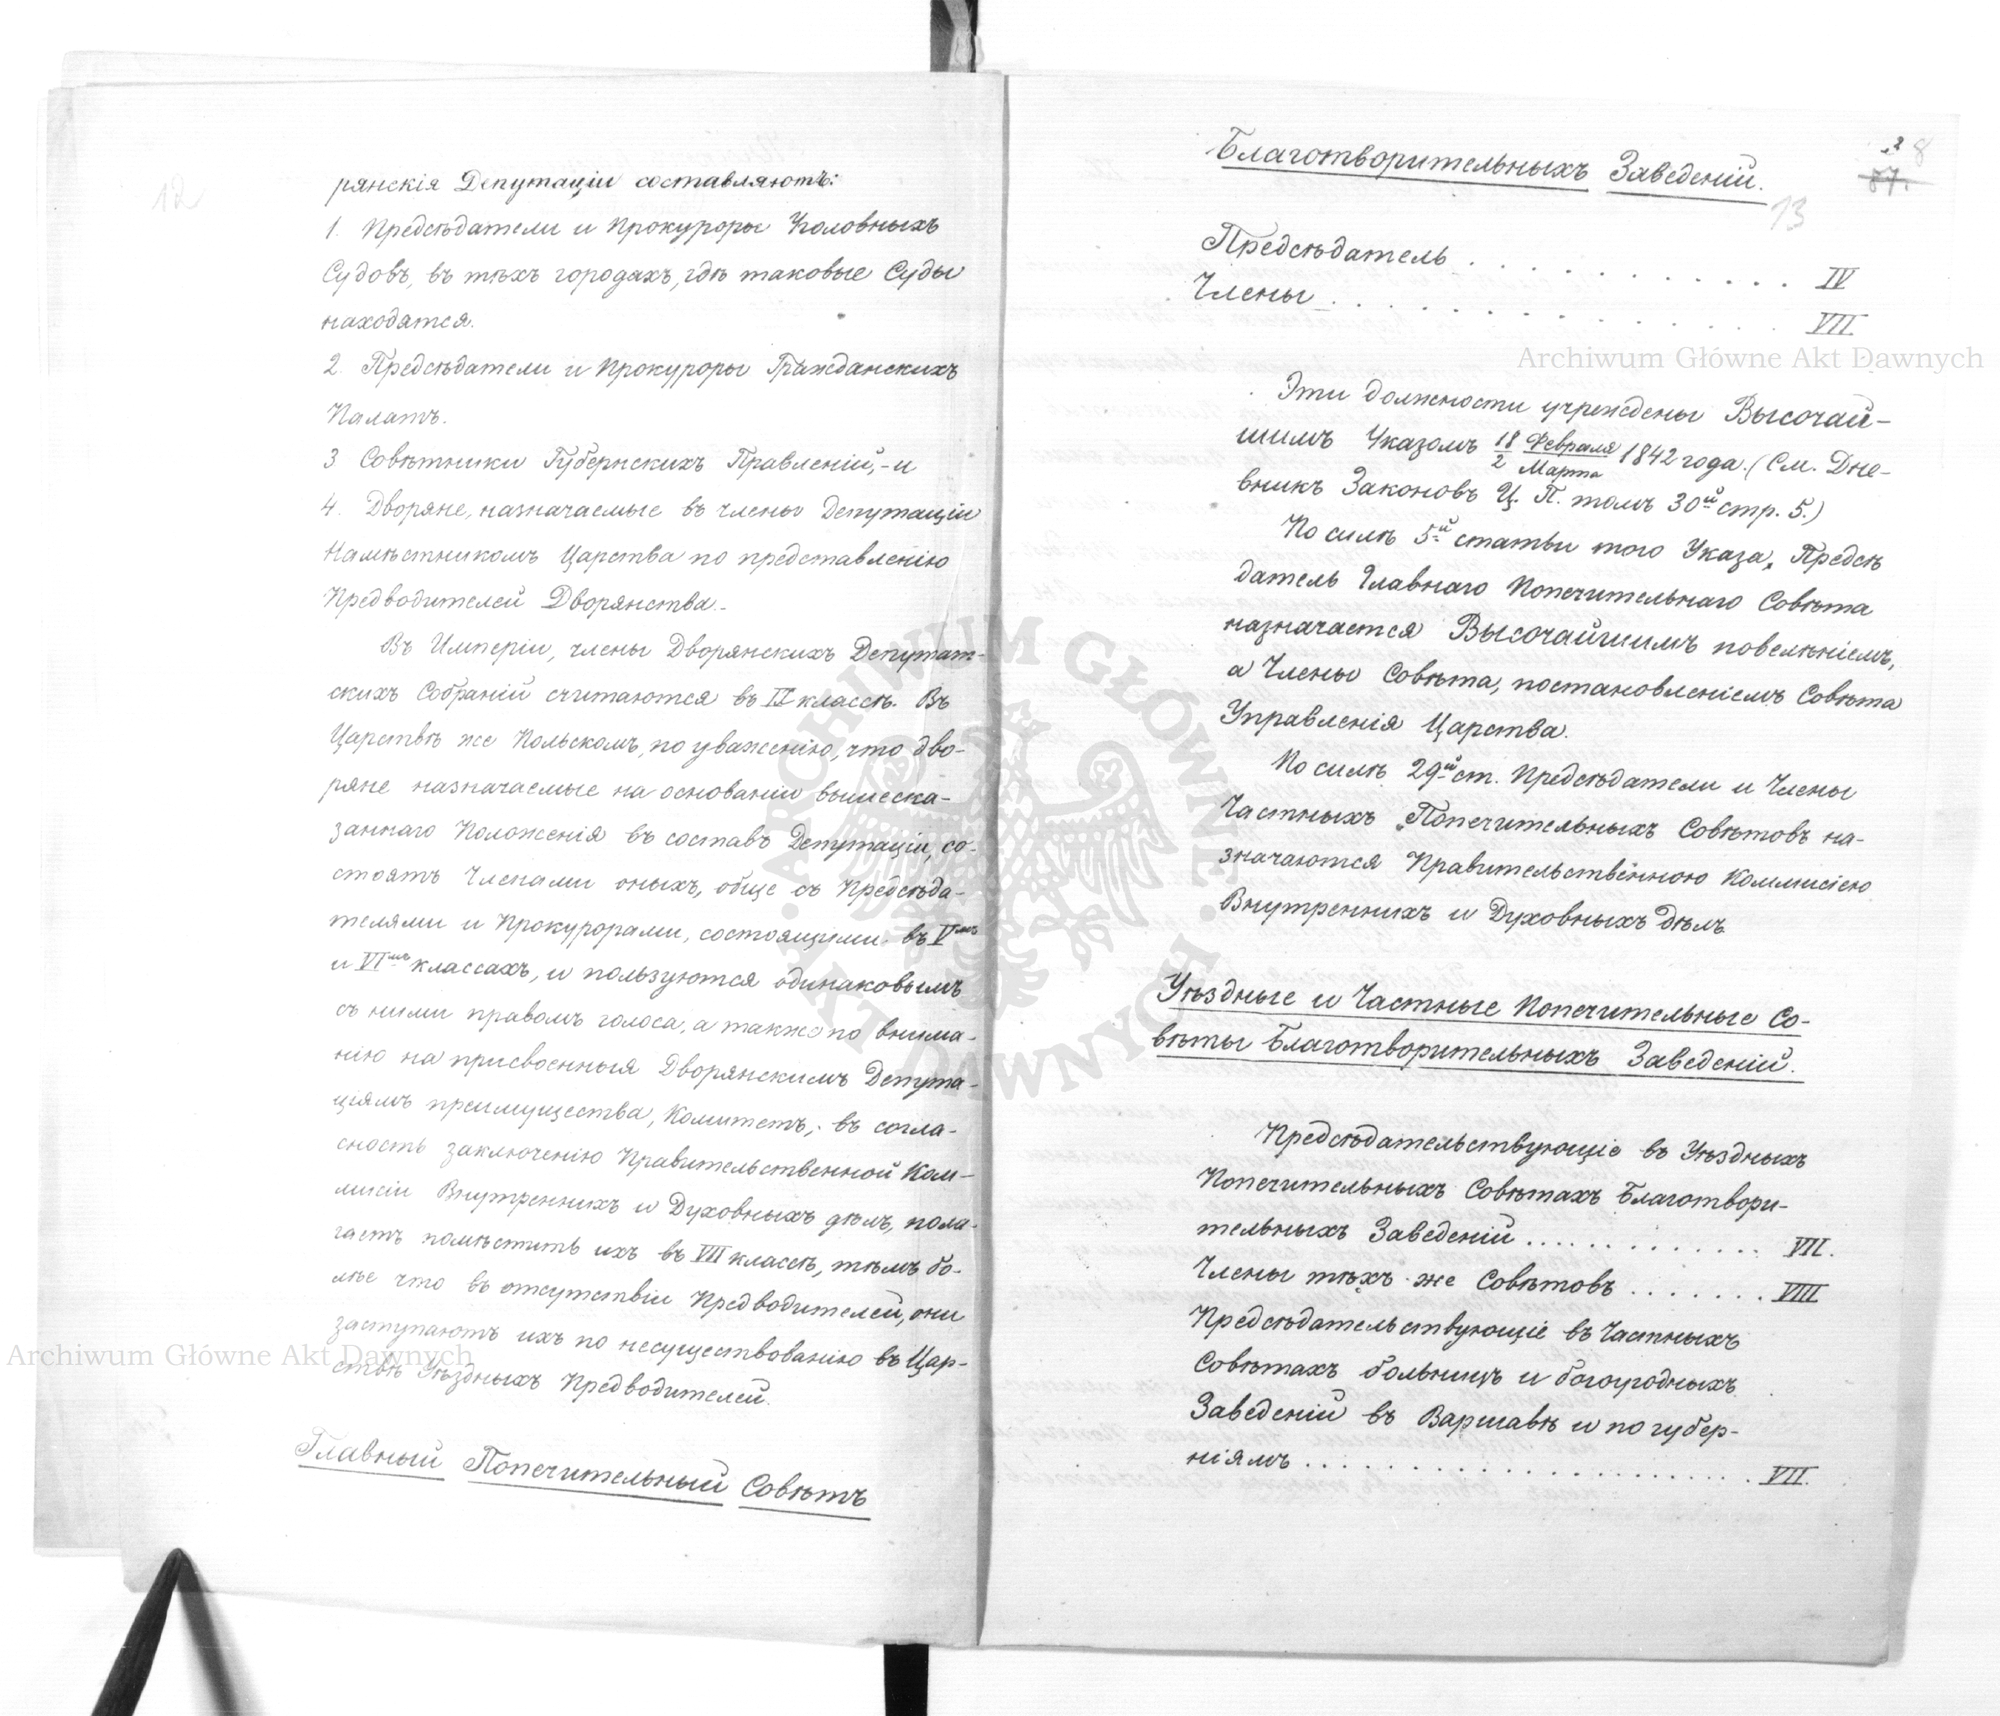 12
рянскія Депутаціи составляютъ:
1. Предсѣдатели и Прокуроры Уголовныхъ
Судовъ, въ тѣхъ городахъ, гдѣ таковые Суды
находятся.
2. Предсѣдатели и Прокуроры Гражданскихъ
Палатъ.
3 Совѣтники Губернскихъ Правленій,-и
4. Дворяне, назначаемые въ члены Депутаціи
Намѣстникомъ Царства по представленію
Предводителей Дворянства.-
Въ Имперіи, члены Дворянскихъ Депутат-
скихъ Собраній считаются въ IX классѣ. Въ
Царствѣ же Польскомъ, по уваженію, что дво-
ряне назначаемые на основаніи вышеска-
заннаго Положенія въ составъ Депутаціи, со-
стоятъ Членами оныхъ, обще съ Предсѣда-
телями и Прокурорами, состоящими въ V мъ
и VI мъ классахъ, и пользуются одинаковымъ
съ ними правомъ голоса, а также по внима-
нію на присвоенныя Дворянскимъ Депута-
ціямъ преимущества, Комитетъ, въ согла-
сность заключенію Правительственной Ком-
мисіи Внутреннихъ и Духовныхъ дѣлъ, пола-
гаетъ помѣстить ихъ въ VII классѣ, тѣмъ бо-
лѣе что въ отсутствіи Предводителей, они
заступаютъ ихъ по несуществованію въ Цар-
ствѣ Уѣздныхъ Предводителей.
Главный Попечительный Совѣтъ
Благотворительныхъ Заведеній.
8
87.
13
Предсѣдатель . . . . . . . . . . . IV
Члены . . . . . . . . . . . . . VII
Эти должности учреждены Высочай-
шимъ Указомъ 18/2 Февраля/Марта 1842 года. (См. Дне-
вникъ Законовъ Ц. П. томъ 30й стр. 5.)
По силѣ 5й статьи того Указа, Предсѣ
датель Главнаго Попечительнаго Совѣта
назначается Высочайшимъ повелѣніемъ,
а Члены Совѣта, постановленіемъ Совѣта
Управленія Царства.
По силѣ 29й ст. Предсѣдатели и Члены
Частныхъ Попечительныхъ Совѣтовъ на-
значаются Правительственною Коммисіею
Внутреннихъ и Духовныхъ дѣлъ
Уѣздные и Частные Попечительные Со-
вѣты Благотворительныхъ Заведеній.
Предсѣдательствующіе въ Уѣздныхъ
Попечительныхъ Совѣтахъ Благотвори-
тельныхъ Заведеній . . . . . . . . . . . . VII.
Члены тѣхъ-же Совѣтовъ . . . . . . . VIII
Предсѣдательствующіе въ Частныхъ
Совѣтахъ больницъ и богоугодныхъ
Заведеній въ Варшавѣ и по губер-
ніямъ . . . . . . . . . . . . . . . . . . VII.
Archiwum Główne Akt Dawnych
Archiwum Główne Akt Dawnych
ARCHIWUM GŁÓWNE
AKT DAWNYCH